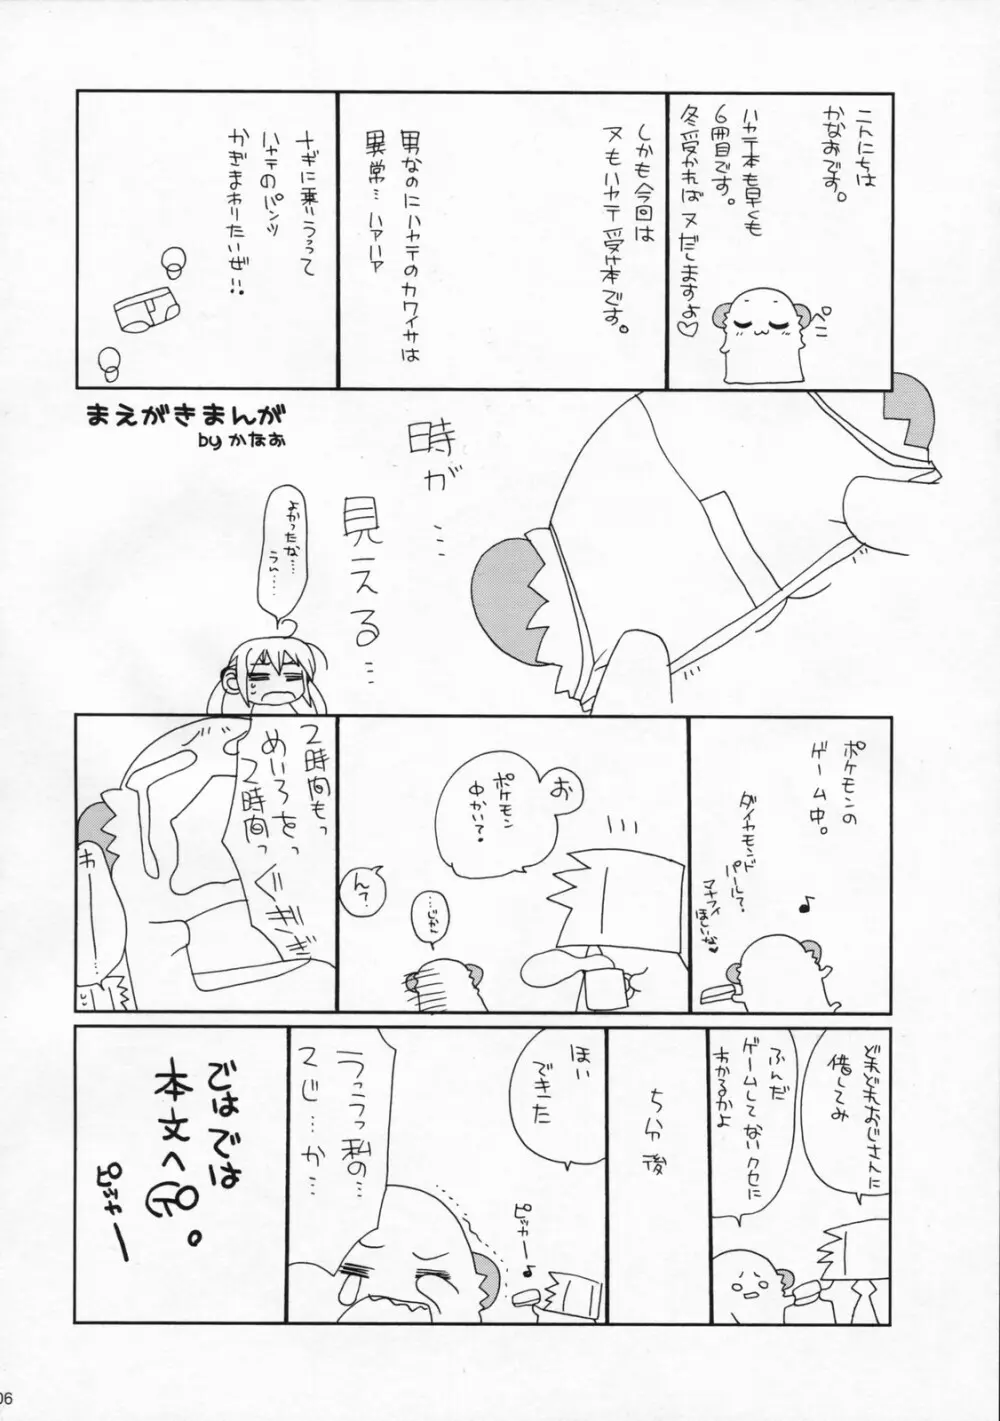 こんにちは
かなおです。
ハヤテ本も早くも
6冊目です。
冬受かればヌだしますよ♡
ペコ
しかも今回は
ヌもハヤテ受け本です。
男なのにハヤテのカワイサは
異常…ハァハァ
ナギに乗りうつって
ハヤテのパンツ
かぎまわりたいぜ!!
まえがきまんが
by かなお
時が…
見える…
よかったな…
うん……
ポケモンの
ゲーム中。
ダイヤモンド
パールって。
マナフィ
ほしいなぁ
♪
お
ポケモン
中かい?
…じわっ
ん?
2時間もっ
めいろをっ
2時間っ
ぐぎぎぎ
わ———…
どれどれおじさんに
借してみ
ふんだ
ゲームしてないクセに
わかるかよ
5分後
ほい
できた
ピッカー♪
うっうっ私の…
2じ…か…
ではでは
本文へGO。